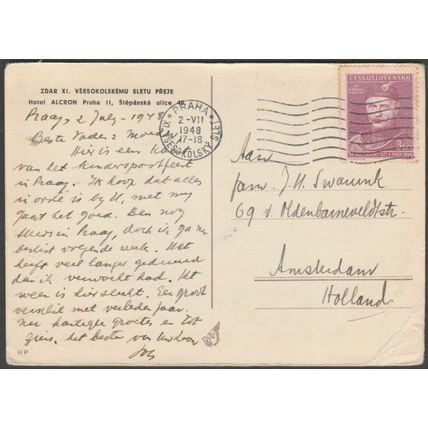 ZDAR XI. VŠESOKOLSKÉMU SLETU PŘEJE
Hotel ALCRON Praha II, Štěpánská ulice
Praag, 2 July - 1948
Beste Vader & Moeder
Hier is een kaart
van het kindersportfeest
in Praag. Ik hoop dat alles
in orde is by U, met my
gaat het goed. Ben nog
steeds in Praag, doch ik ga nu
beslist volgende week. Het
heeft veel langer geduurd
dan ik verwacht had. Het
weer is hier slecht. Een groot
verschil met verleden jaar.
Nu hartelyke groeten en tot
ziens, het beste van Uw zoon
HP
PRAHA
2-VII
1948
17-18
XI. VŠESOKOLSKÝ SLET
ČESKOSLOVENSKO
Aan
fam. J.H. Swanink
69 v. Oldenbarneveldtstr.
Amsterdam
Holland.